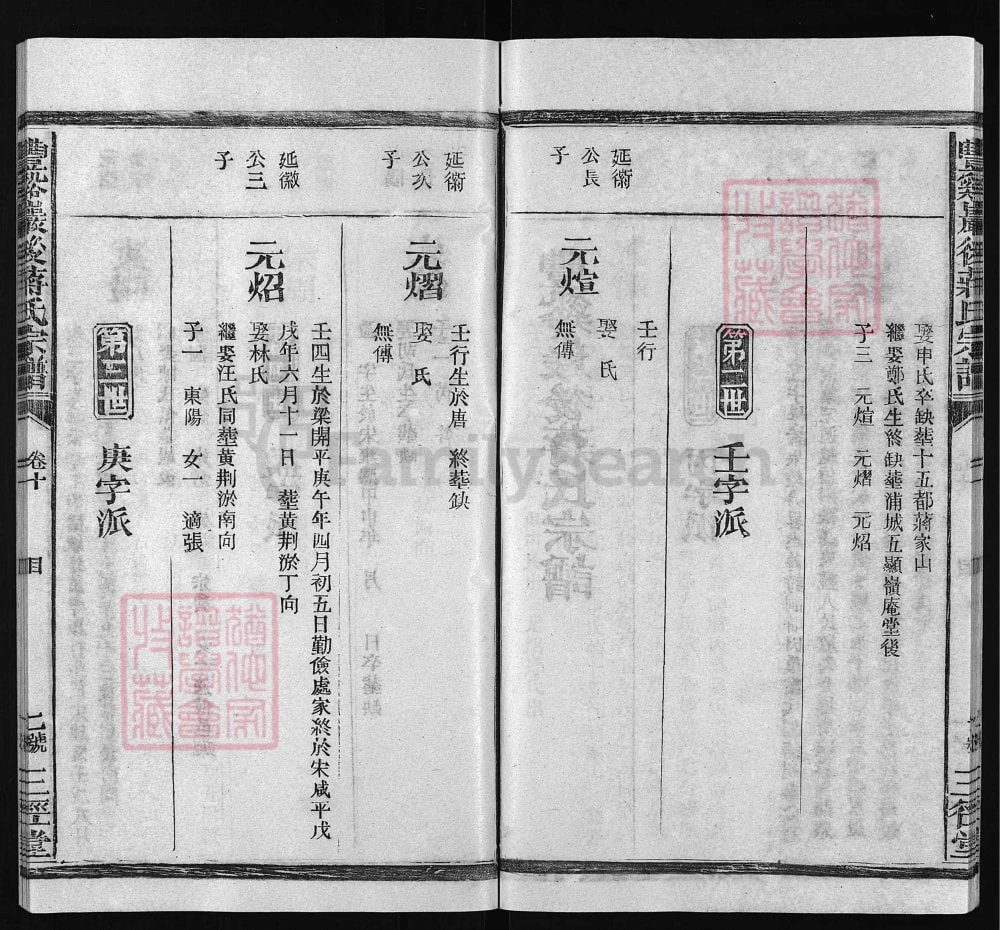 娶申氏卒缺塟十五都蔣家山
繼娶鄭氏生終缺塟浦城五顯嶺庵堂後
子三 元煊 元熠 元炤
第二世 壬字派
延衛公長子
元煊
壬行
娶 氏
無傳
延衛公次子
元熠
壬行生於唐 終塟缺
娶 氏
無傳
延徽公三子
元炤
壬四生於梁開平庚午年四月初五日勤儉處家終於宋咸平戊
戌年六月十一日 塟黃荆淤丁向
娶林氏
繼娶汪氏同塟黃荆淤南向
子一 東陽 女一 適張
第三世 庚字派
蔣氏宗譜
卷十
七號
三徑堂
FamilySearch